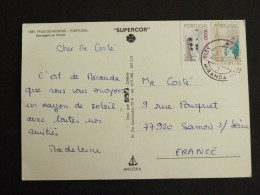 "SUPERCOR"
PORTUGAL
PORTUGAL
MIRANDA
Cher Mr Costé
C'est de Miranda
que nous vous envoyons
un rayon de soleil
avec toutes nos
amitiés
Madeleine
Mr COSTÉ
9 rue Pouquet
77920 Samois s/Seine
FRANCE
ÂNCORA